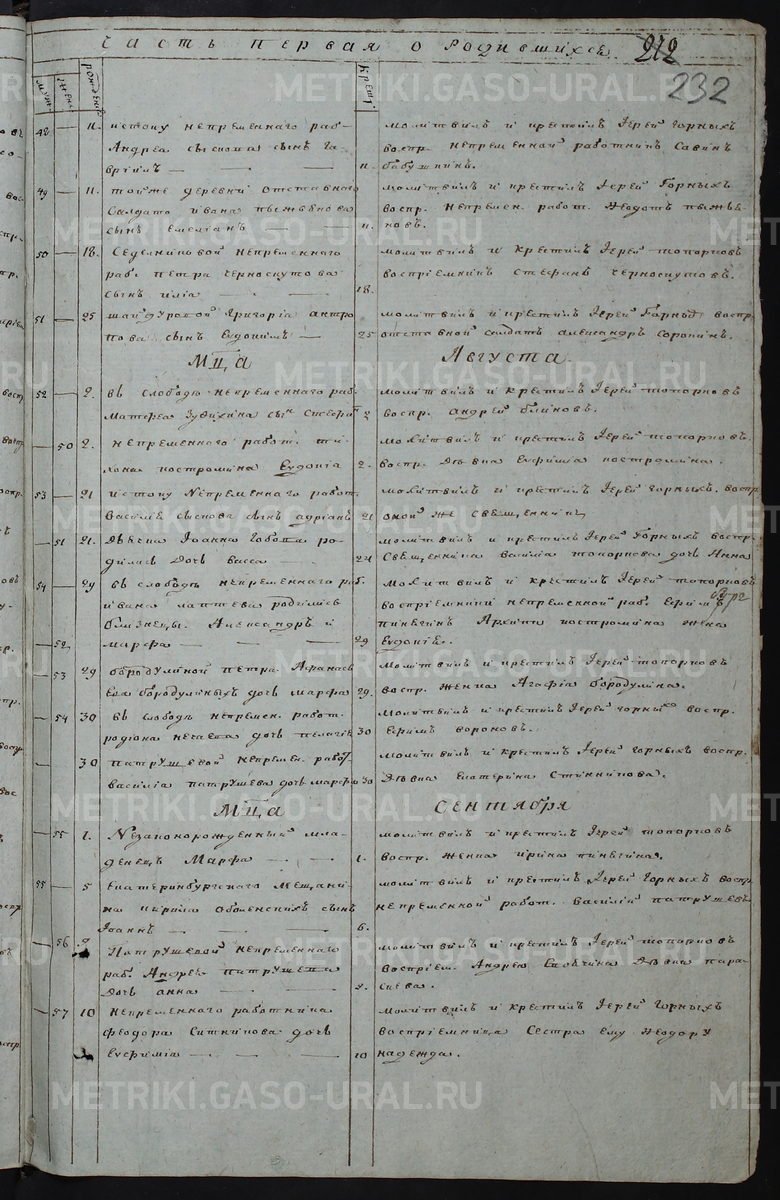 часть первая о родившихся 212
232
муж женс рожден крещ
42 — 11. истоку непременнаго раб-
Андрея сыскова сынъ Га-
врiилъ — — —
молитвилъ и крестилъ Iерей Горныхъ
воспр. непременной работникъ Савинъ
11. бабушкинъ.
49 — 11. тойже деревни отставнаго
Солдата ивана пыжьянова
сынъ емелiанъ — —
молитвилъ и крестилъ Iерей Горныхъ
воспр. непремен. работ. Ѳедотъ пыжья-
11. новъ.
50 — 18. Седелниковой непременнаго
раб. петра черноскутова
сынъ илiа — — —
молитвилъ и крестилъ Iерей топорковъ
воспрiемникъ стефанъ черноскутовъ.
18.
51 — 25 шайдуровой Григорiа антро
пова сынъ Евдокимъ —
молитвилъ и крестилъ Iерей Горныхъ воспр.
25 отставной солдатъ александръ сорокинъ.
Мца Августа
52 — 2. въ слободе непременнаго раб.
Матѳеа Зудихина сын
молитвилъ и крестилъ Iерей топорковъ
2 воспр. андрей блиновъ.
— 50 2. непременнаго работ. ти-
хона костромина Евдокiа
молитвилъ и крестилъ Iерей топорковъ.
2. воспр. Девка Евфимiа костромина.
53 — 21 истоку Непременнаго работ.
Василiа сыскова сынъ адрiанъ
молитвилъ и крестилъ Iерей горныхъ. воспр
21 оной же священникъ
— 51 21. Девена Iоанна ро-
дилась дочь васса — —
молитвилъ и крестилъ Iерей Горныхъ воспр.
24 Священника василiа топоркова дочь Анна
54 — 29 въ слободе непременнаго раб.
ивана лаптева родились
близнецы. Александръ и
— 52. марѳа — — —
молитвилъ и крестилъ Iерей топорковъ
воспрiемники непременной раб. Ефимъ
пинегинъ Архипа костромина жена
29 Евдокiа.
— 53 29 бородулиной петра Афанась
ева бородулиныхъ дочь марѳа
молитвилъ и крестилъ Iерей топорковъ
29. воспр. женка Агафiа бородулина.
— 54 30 въ слободе непремен. работ.
родiона нечаева дочь пелагiа
молитвилъ и крестилъ Iерей горныхъ воспр.
30 Ефимъ вороновъ.
30 патрушевой непремен. работ
василiа патрушева дочь марѳа
молитвилъ и крестилъ Iерей горныхъ воспр.
30 Девка Екатерина
Мца сентября
— 55 1. Незаконорожденный мла-
денецъ Марѳа — —
молитвилъ и крестилъ Iерей топорковъ
1. воспр. женка ирина пинегина.
55 — 5 Екатеринбургскаго Мещани-
на кирила Оболенскихъ сынъ
Iоаннъ — — —
молитвилъ и крестилъ Iерей Горныхъ воспр.
непременной работ. василiй патрушевъ
6.
— 56 9 Патрушевой непременнаго
раб. Андреа патрушева
дочь анна — — —
молитвилъ и крестилъ Iерей топорковъ
воспрiем. Андрею Девка пара-
9. скева.
— 57 10 непременнаго работника
ѳеодора Ситникова дочь
Евфимiа — — —
молитвилъ и крестилъ Iерей Горныхъ
воспрiемница Сестра ему Ѳеодору
10 надежда.
METRIKI.GASO-URAL.RU